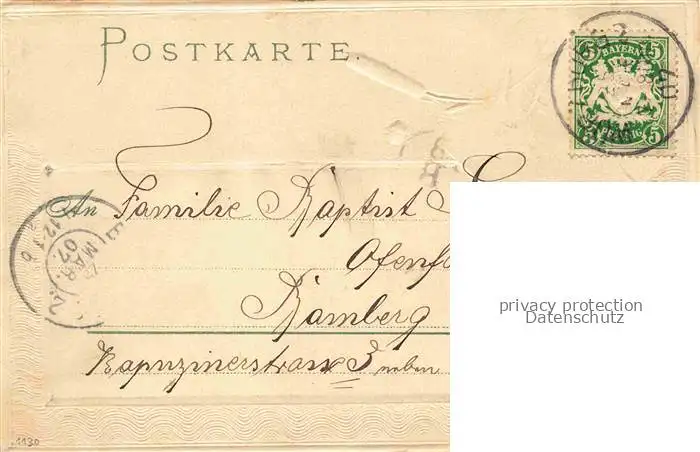 POSTKARTE.
5 BAYERN 5
5 PFENNIG 5
An Familie Baptist
Bamberg
Kapuzinerstrasse 3 neben
MAR
07
privacy protection
Datenschutz
1130